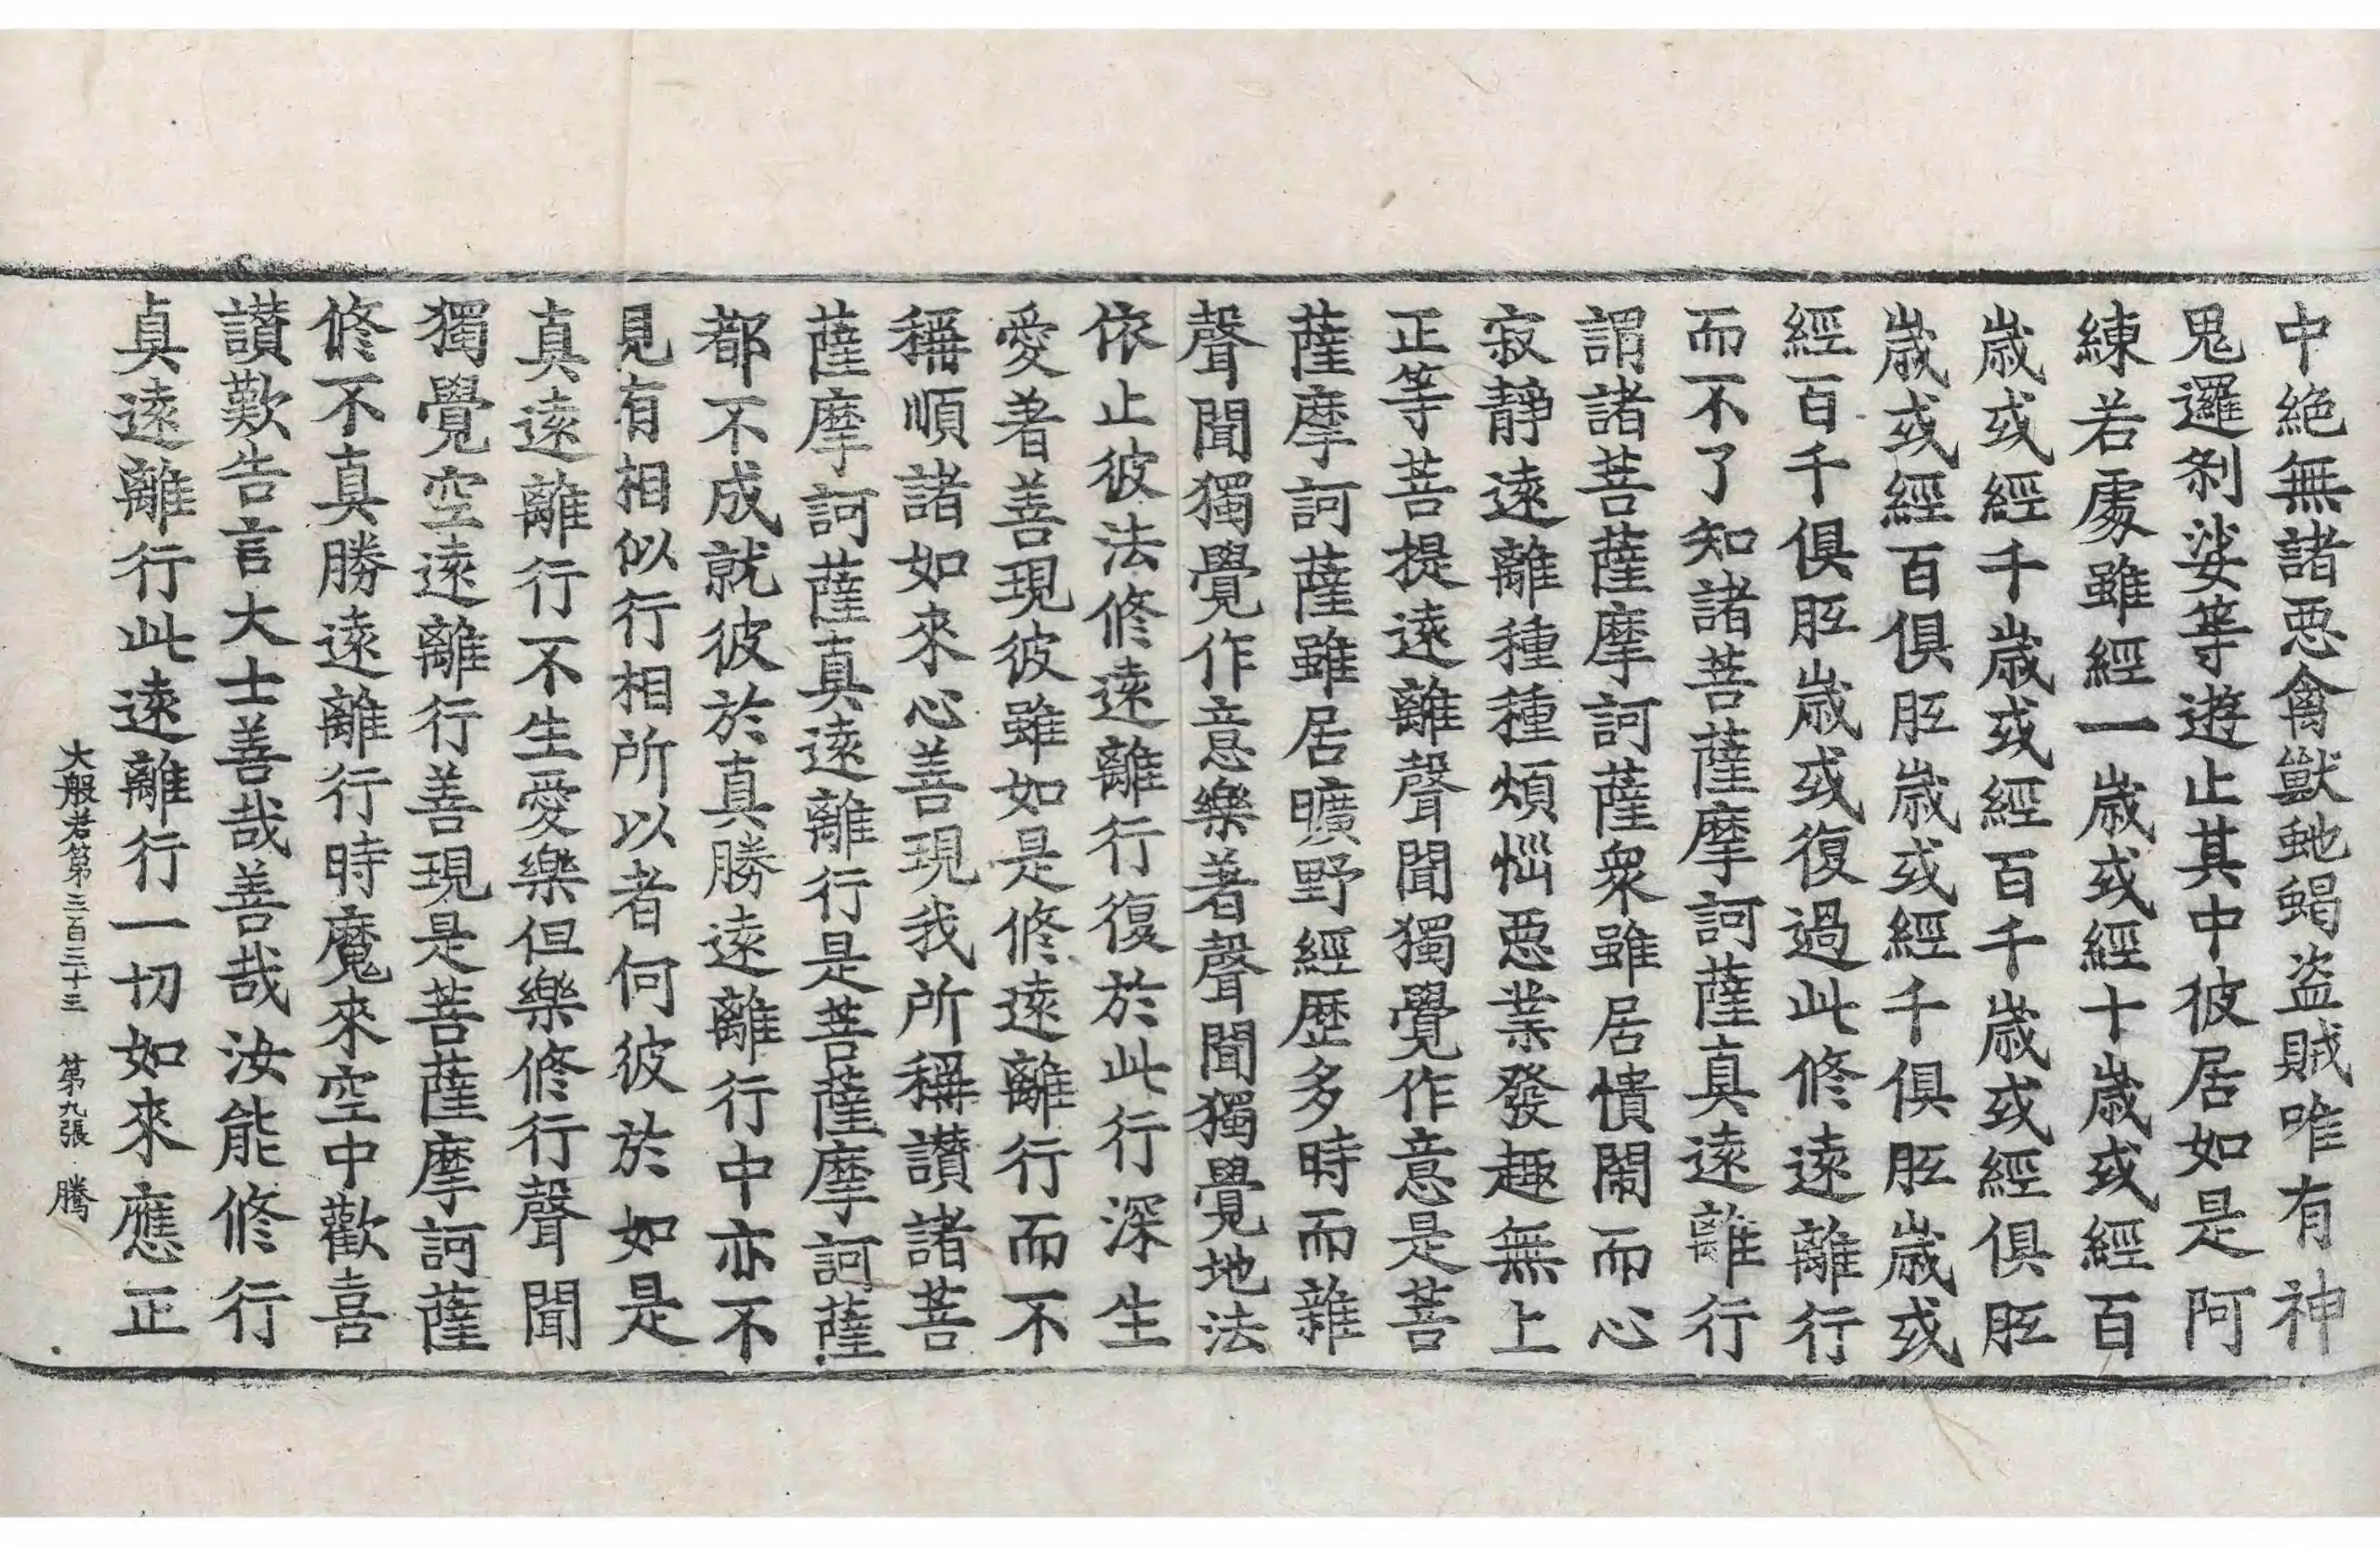 中絶無諸惡禽獸虵蝎盗賊唯有神
鬼邏剎娑等遊止其中彼居如是阿
練若處雖經一歲或經十歲或經百
歲或經千歲或經百千歲或經俱胝
歲或經百俱胝歲或經千俱胝歲或
經百千俱胝歲或復過此修遠離行
而不了知諸菩薩摩訶薩真遠離行
謂諸菩薩摩訶薩衆雖居憒閙而心
寂靜遠離種種煩惱惡業發趣無上
正等菩提遠離聲聞獨覺作意是菩
薩摩訶薩雖居曠野經歷多時而雜
聲聞獨覺作意樂著聲聞獨覺地法
依止彼法修遠離行復於此行深生
愛著善現彼雖如是修遠離行而不
稱順諸如來心善現我所稱讃諸菩
薩摩訶薩真遠離行是菩薩摩訶薩
都不成就彼於真勝遠離行中亦不
見有相似行相所以者何彼於如是
真遠離行不生愛樂但樂修行聲聞
獨覺空遠離行善現是菩薩摩訶薩
修不真勝遠離行時魔來空中歡喜
讃歎告言大士善哉善哉汝能修行
真遠離行此遠離行一切如來應正
大般若第三百三十三 第九張 騰